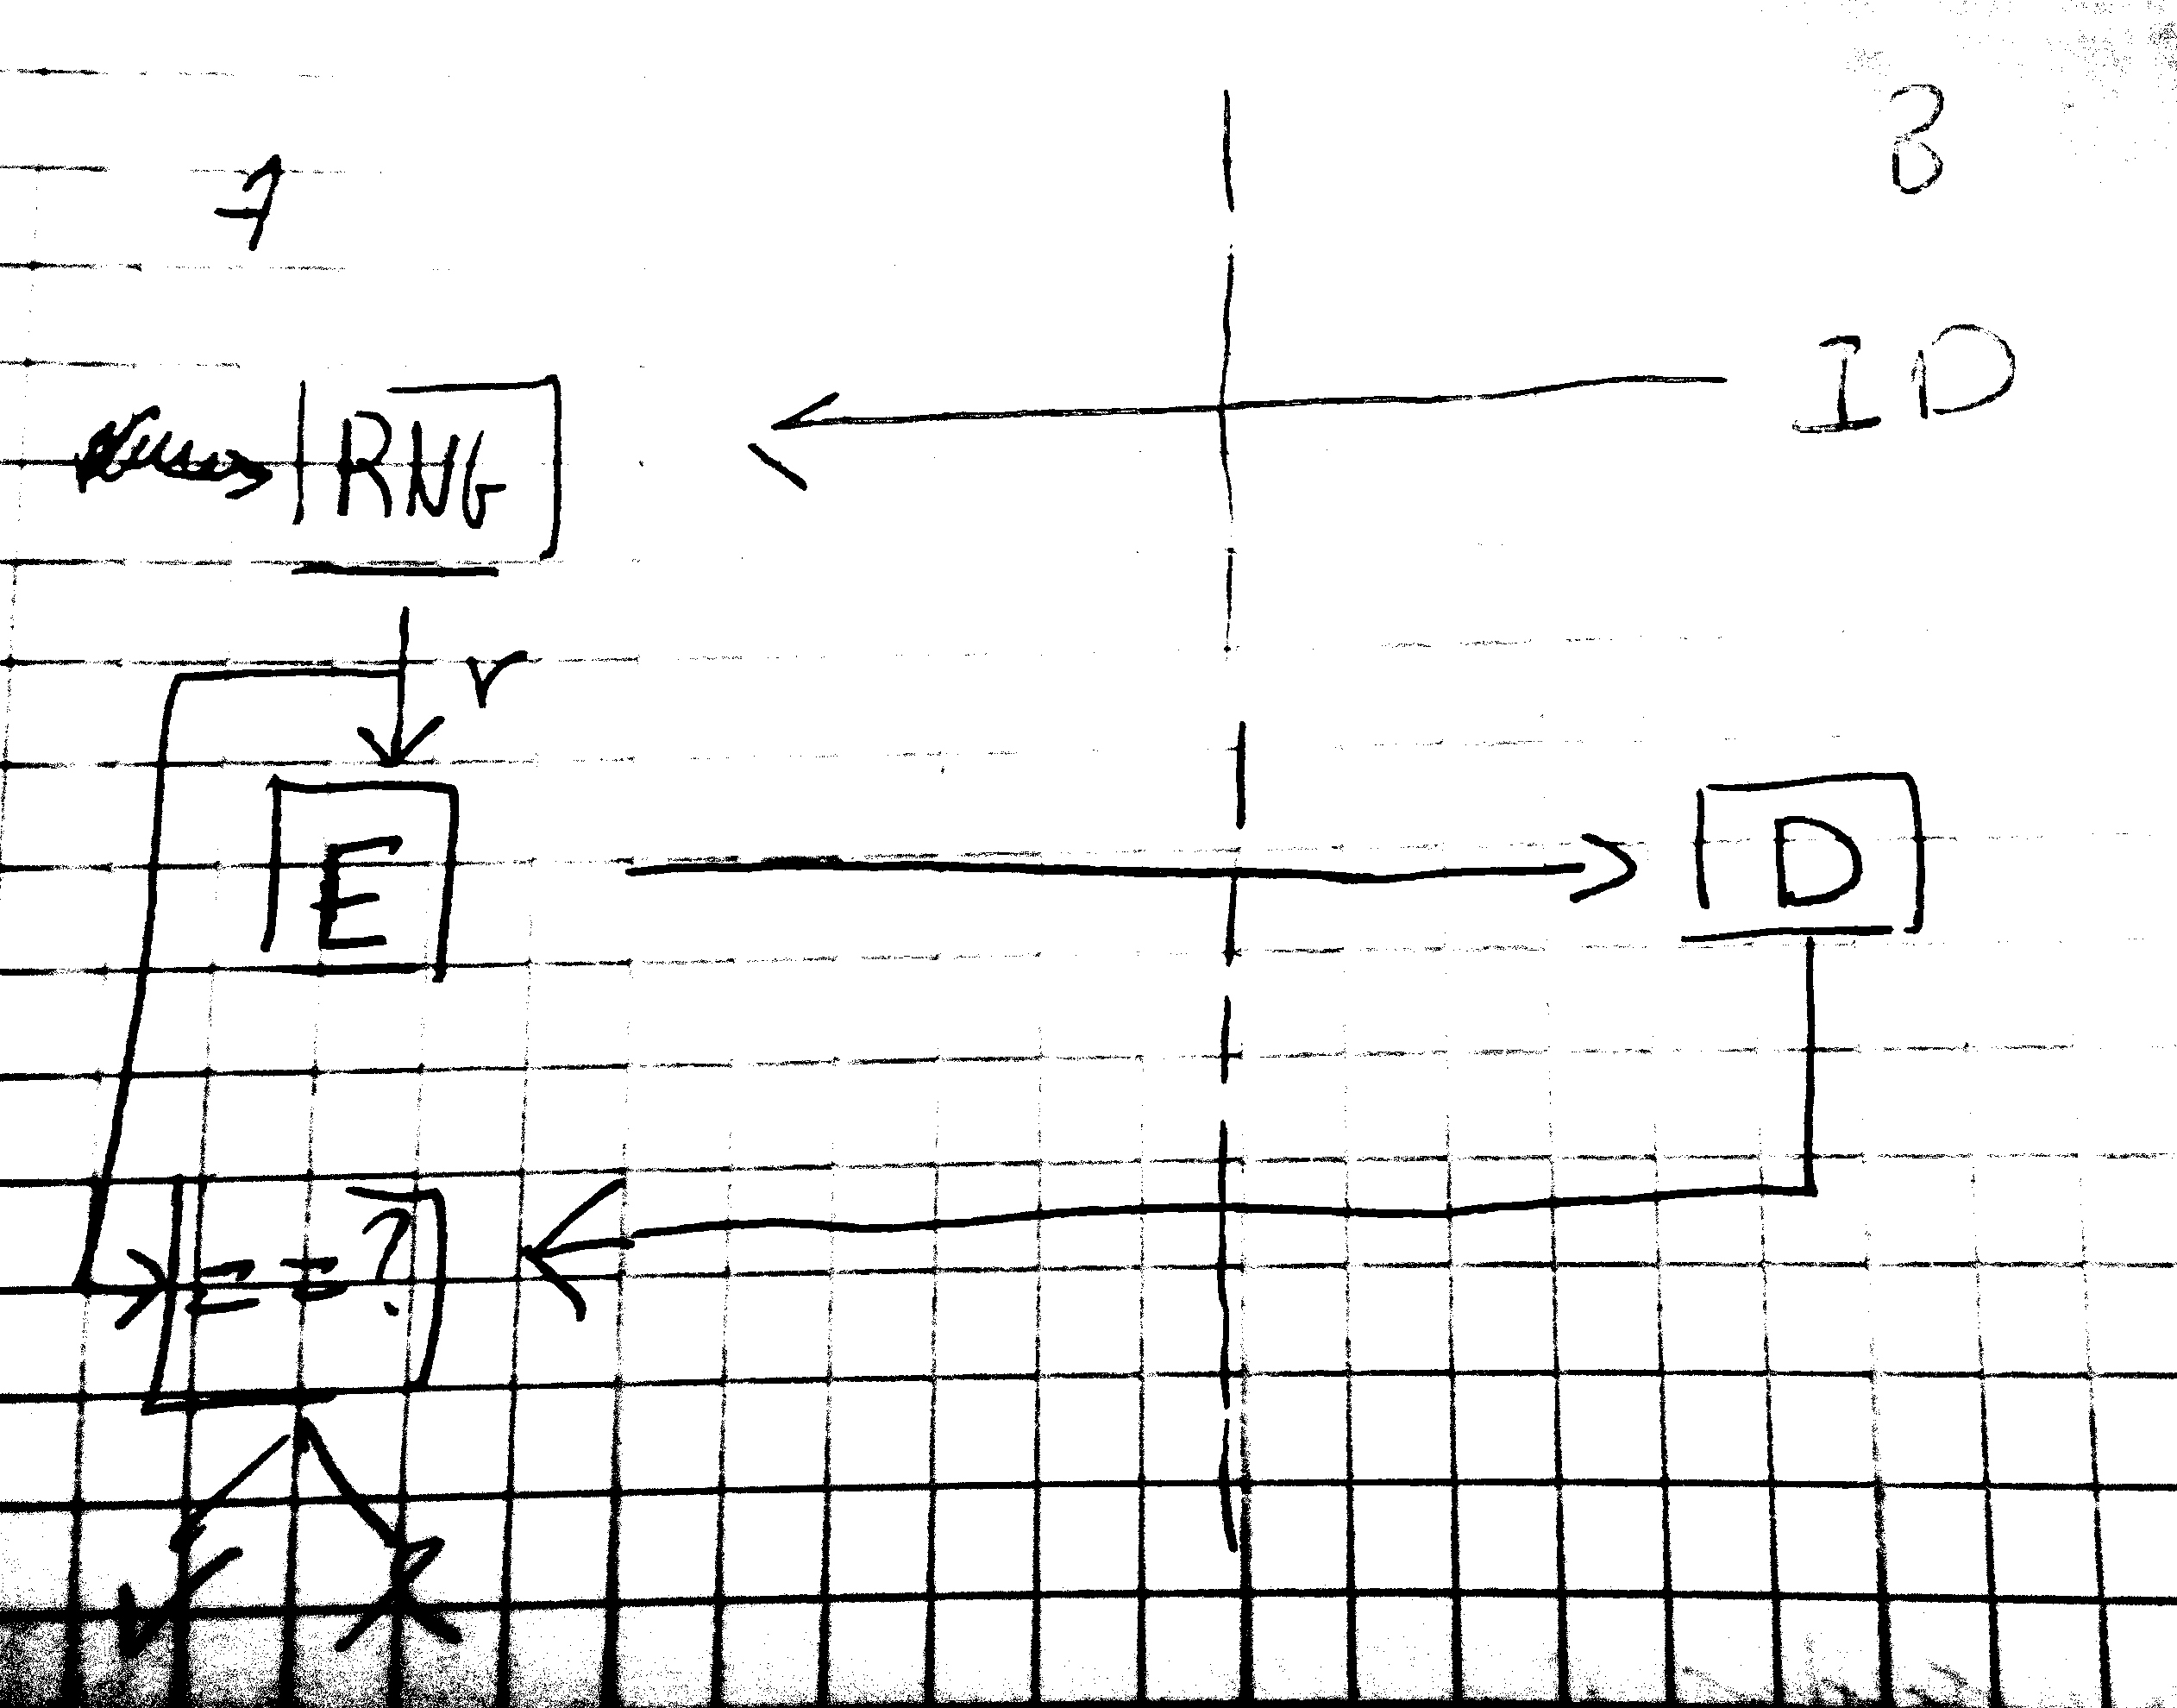 A B
ID
RNG
r
E D
==?